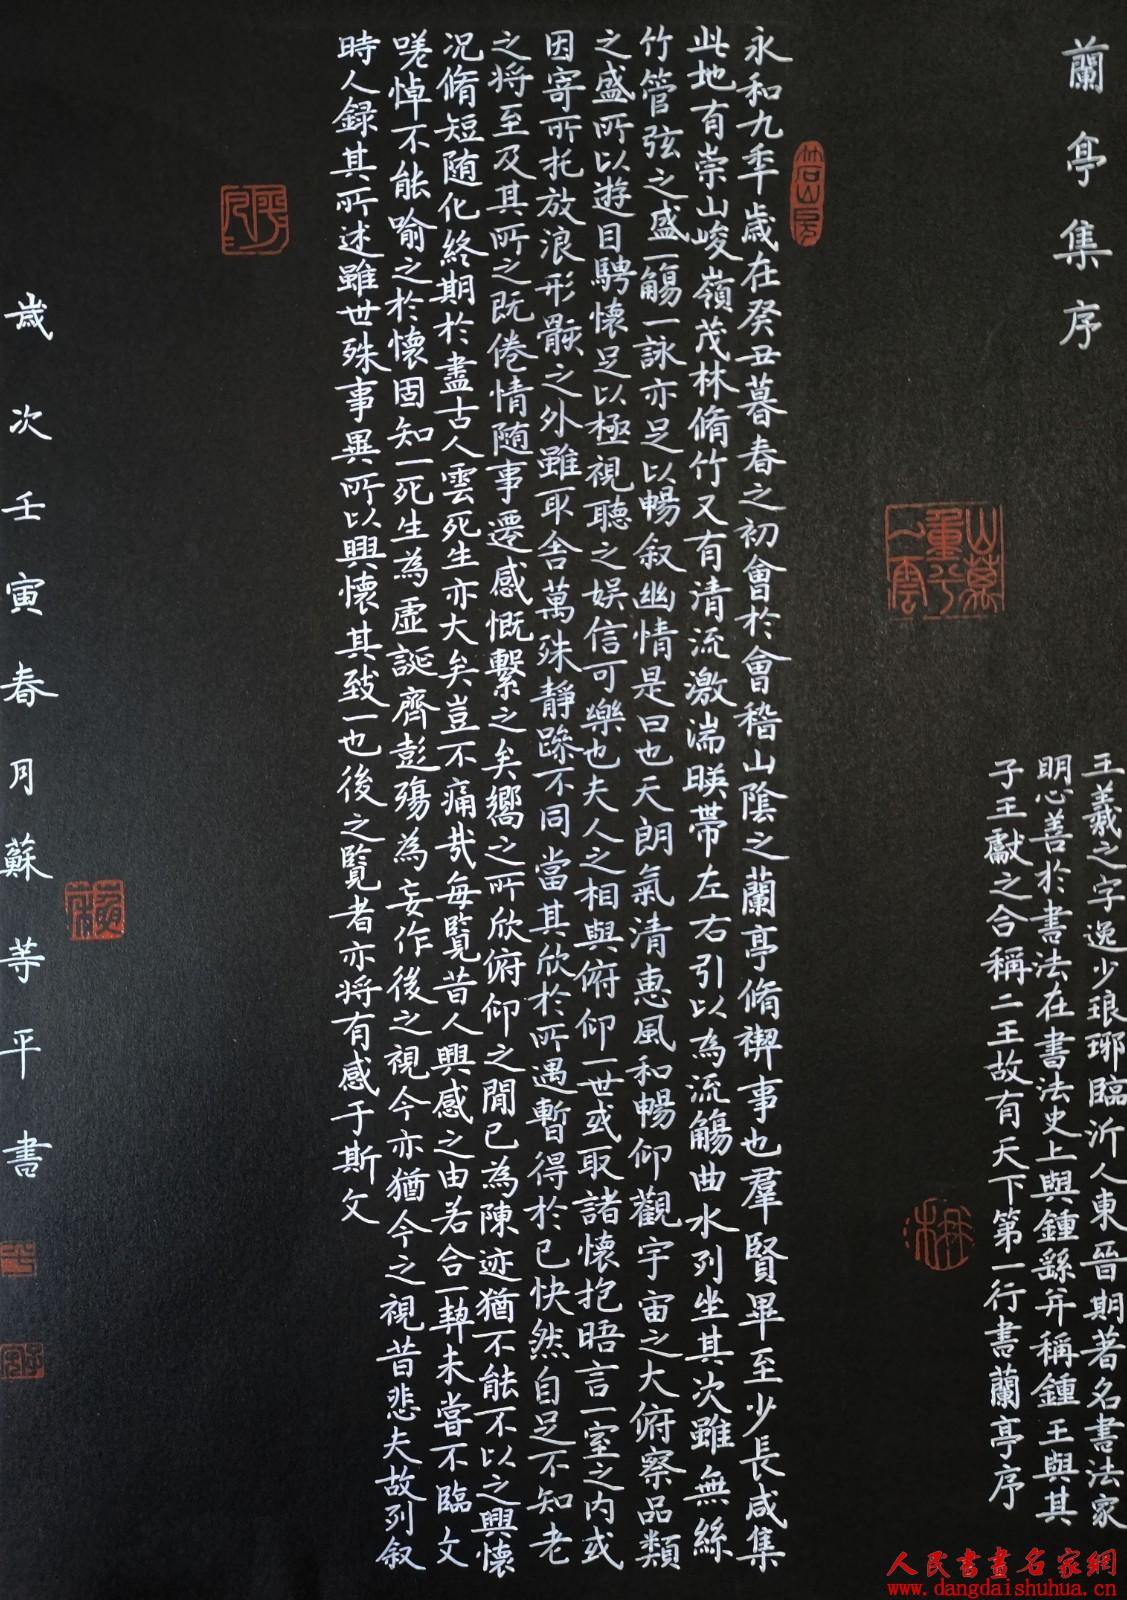 蘭亭集序
王羲之字逸少琅琊臨沂人東晉期著名書法家
明心善於書法在書法史上與鍾繇并稱鍾王與其
子王獻之合稱二王故有天下第一行書蘭亭序
永和九年歲在癸丑暮春之初會於會稽山陰之蘭亭脩禊事也羣賢畢至少長咸集
此地有崇山峻嶺茂林脩竹又有清流激湍暎帶左右引以為流觴曲水列坐其次雖無絲
竹管弦之盛一觴一詠亦足以暢叙幽情是日也天朗氣清惠風和暢仰觀宇宙之大俯察品類
之盛所以遊目騁懷足以極視聽之娛信可樂也夫人之相與俯仰一世或取諸懷抱晤言一室之内或
因寄所托放浪形骸之外雖取舍萬殊靜躁不同當其欣於所遇暫得於己快然自足不知老
之將至及其所之既倦情随事遷感慨繫之矣嚮之所欣俯仰之間已為陳迹猶不能不以之興懷
况脩短随化終期於盡古人雲死生亦大矣豈不痛哉每覧昔人興感之由若合一契未嘗不臨文
嗟悼不能喻之於懷固知一死生為虛誕齊彭殤為妄作後之視今亦猶今之視昔悲夫故列叙
時人録其所述雖世殊事異所以興懷其致一也後之覧者亦将有感于斯文
歲次壬寅春月蘇等平書
人民書畫名家網
www.dangdaishuhua.cn